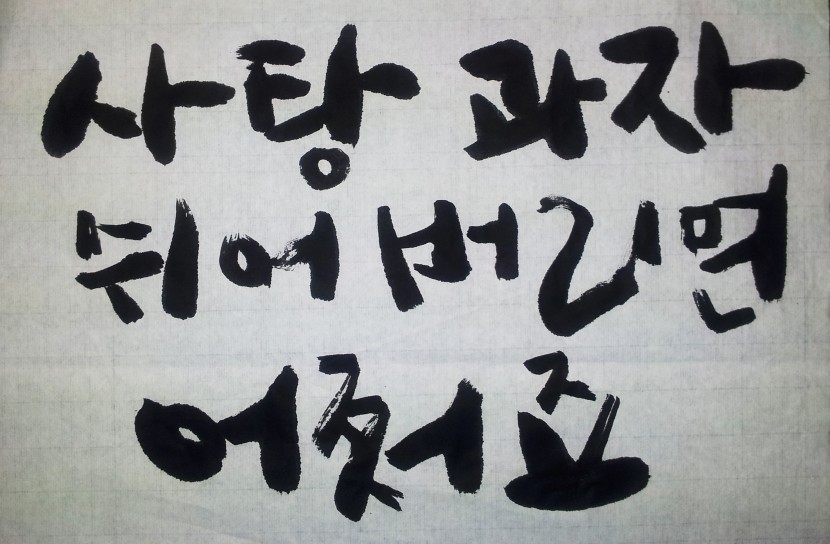 사탕 과자
뛰어 버리면
어쩌죠